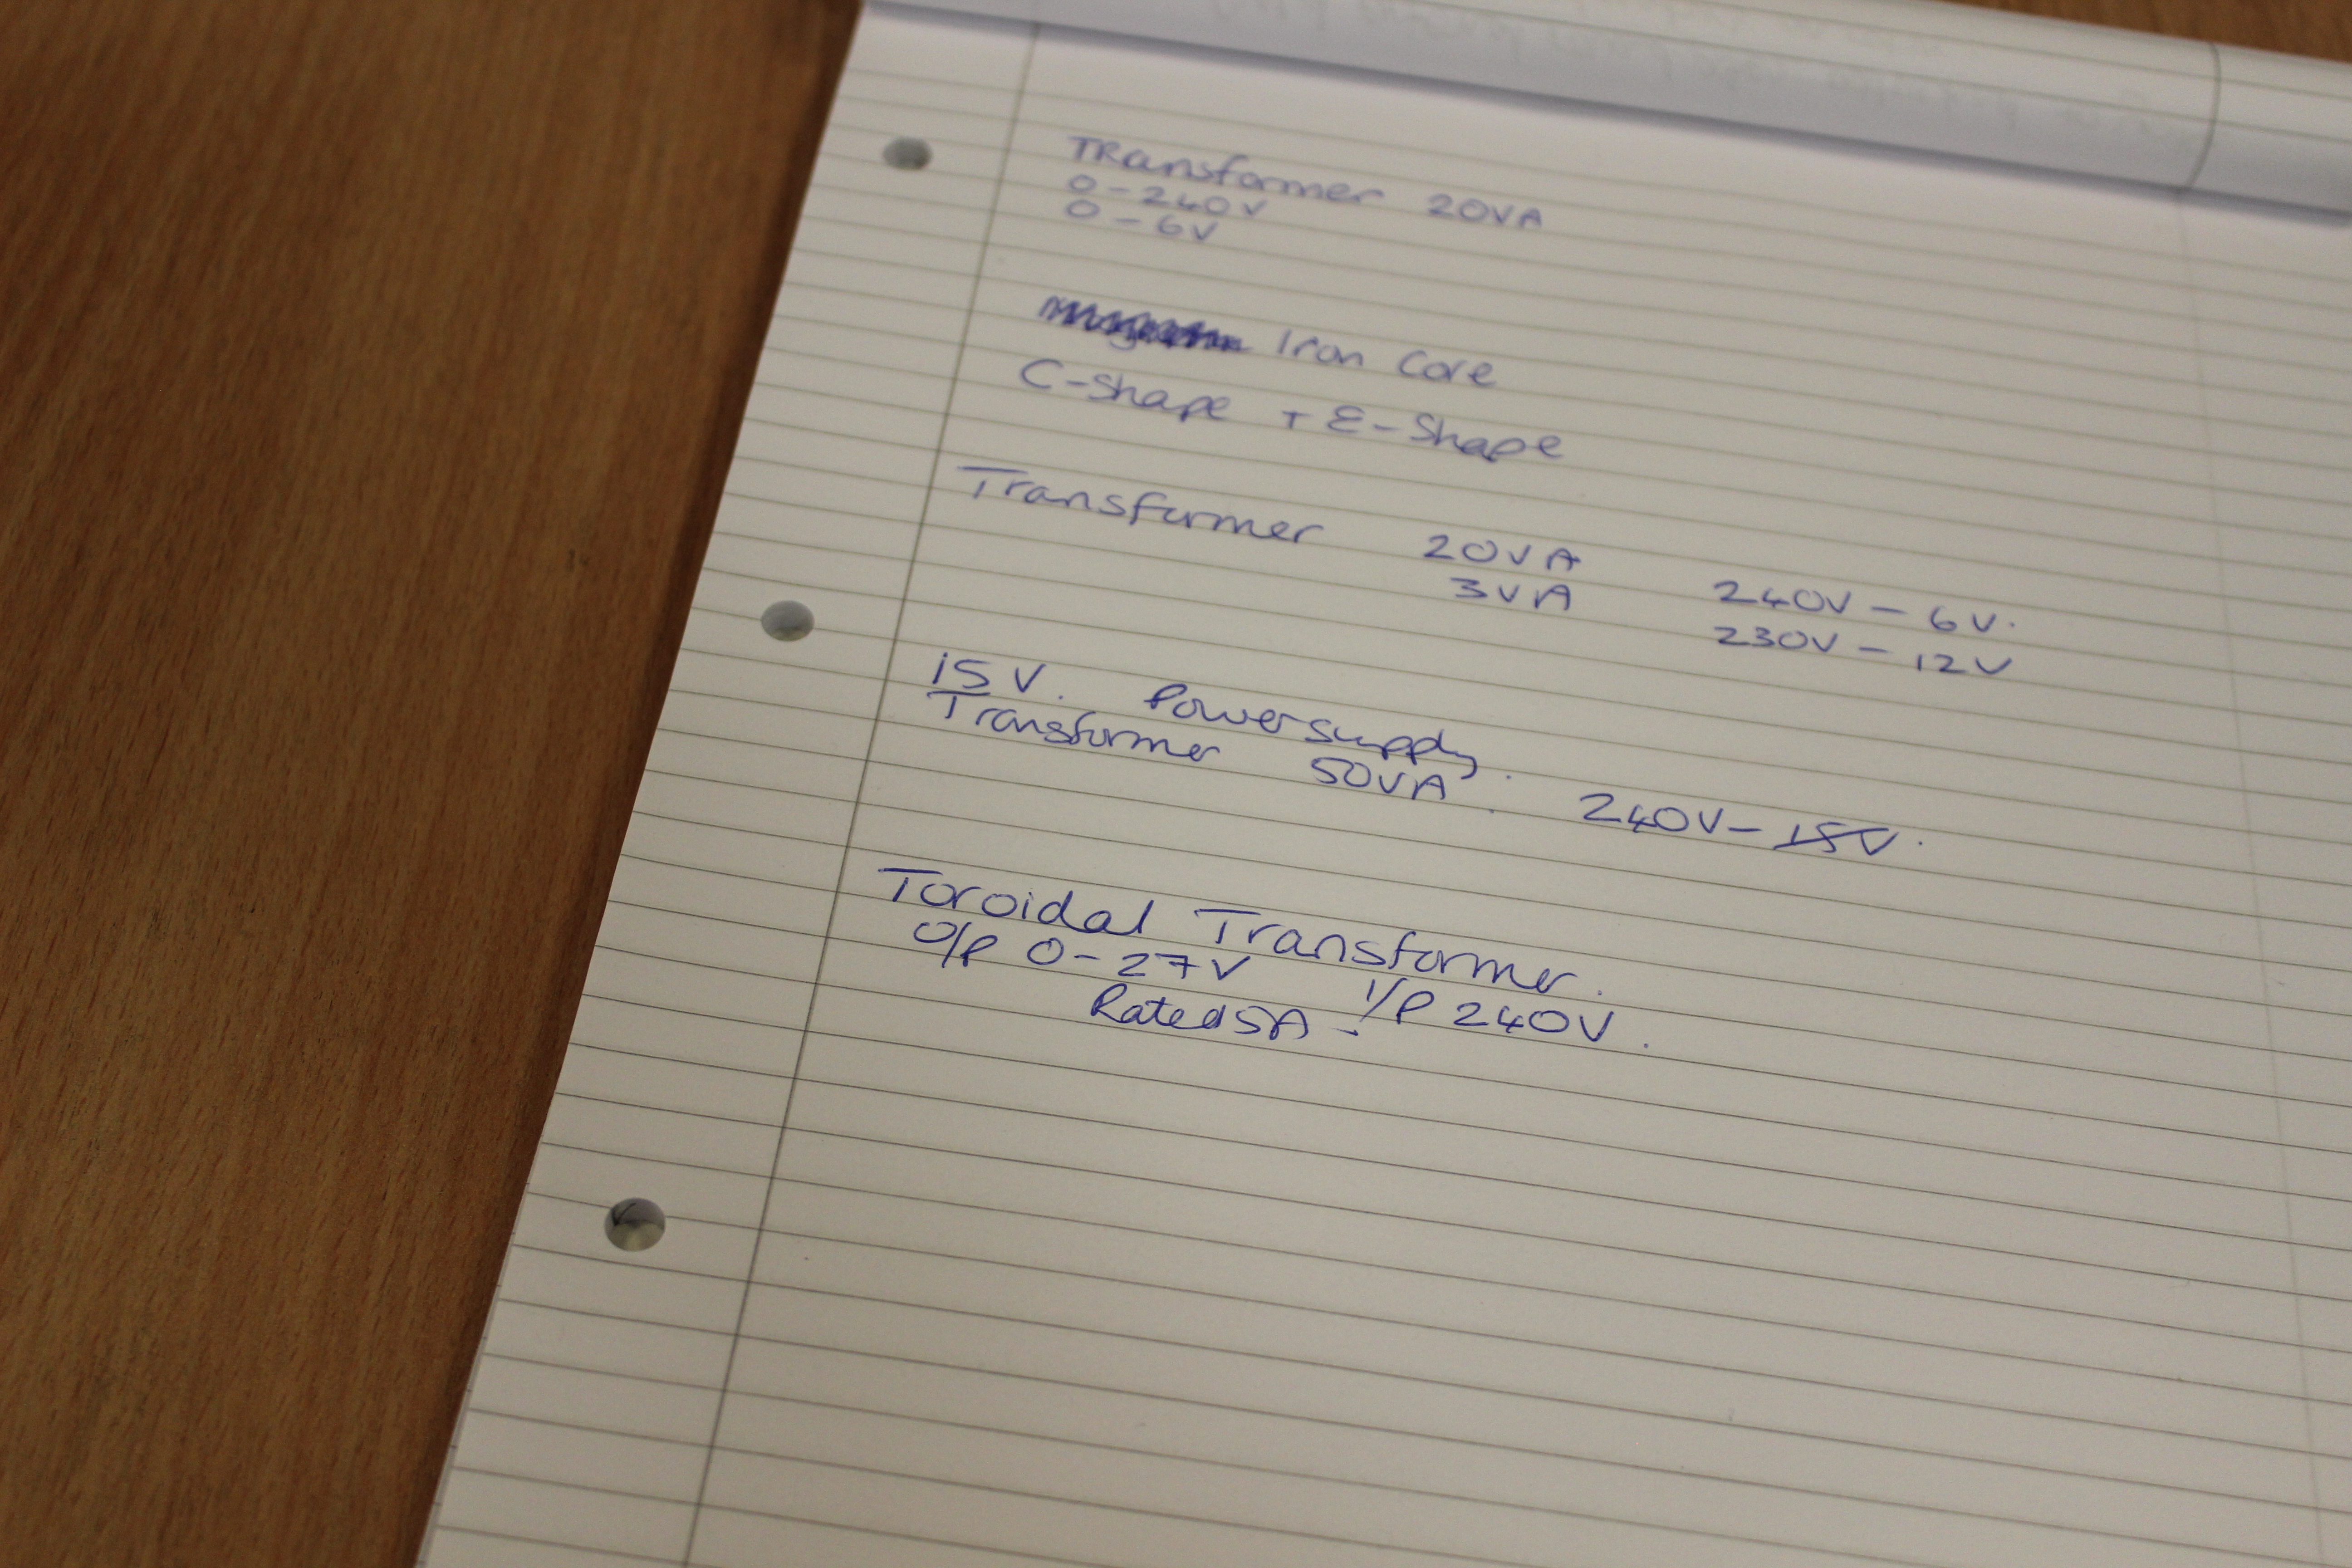 TRansformer 20VA
0-240V
0-6V
Iron Core
C-Shape + E-Shape
Transformer 20VA 240V - 6V.
3VA 230V - 12V
15V. Powersupply.
Transformer 50VA. 240V - 15V.
Toroidal Transformer.
O/P 0-27V I/P 240V.
Rated 5A -